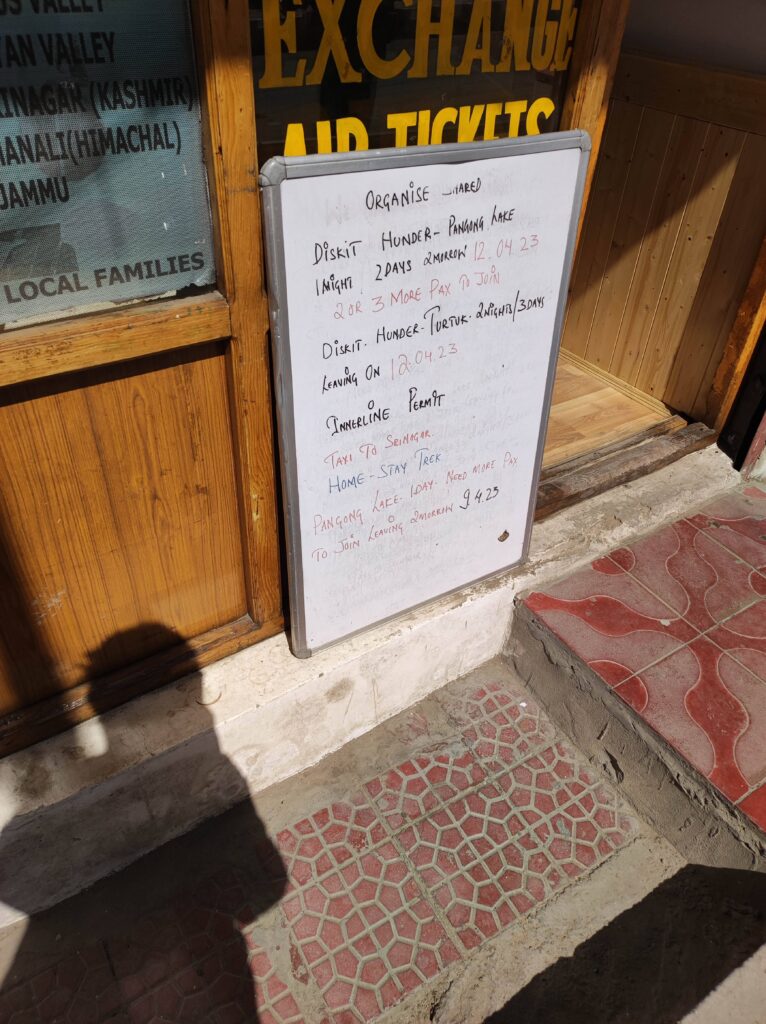 VALLEY
VALLEY
(KASHMIR)
(HIMACHAL)
JAMMU
LOCAL FAMILIES
EXCHANGE
AIR TICKETS
ORGANISE
DISKIT HUNDER - PANGONG LAKE
1NIGHT 2DAYS 2MORROW 12.04.23
2 OR 3 MORE PAX TO JOIN
DISKIT. HUNDER - TURTUK - 2NIGHTS/3DAYS
LEAVING ON 12.04.23
INNERLINE PERMIT
TAXI TO SRINAGAR.
HOME - STAY TREK
PANGONG LAKE - 1DAY. NEED MORE PAX
TO JOIN LEAVING 2MORROW 9.4.23